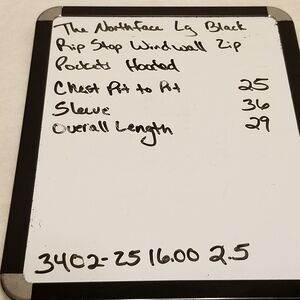 The Northface Lg Black
Rip Stop Windwall Zip
Pockets Hooded
Chest Pit to Pit 25
Sleeve 36
Overall Length 29
3402-25 16.00 2.5